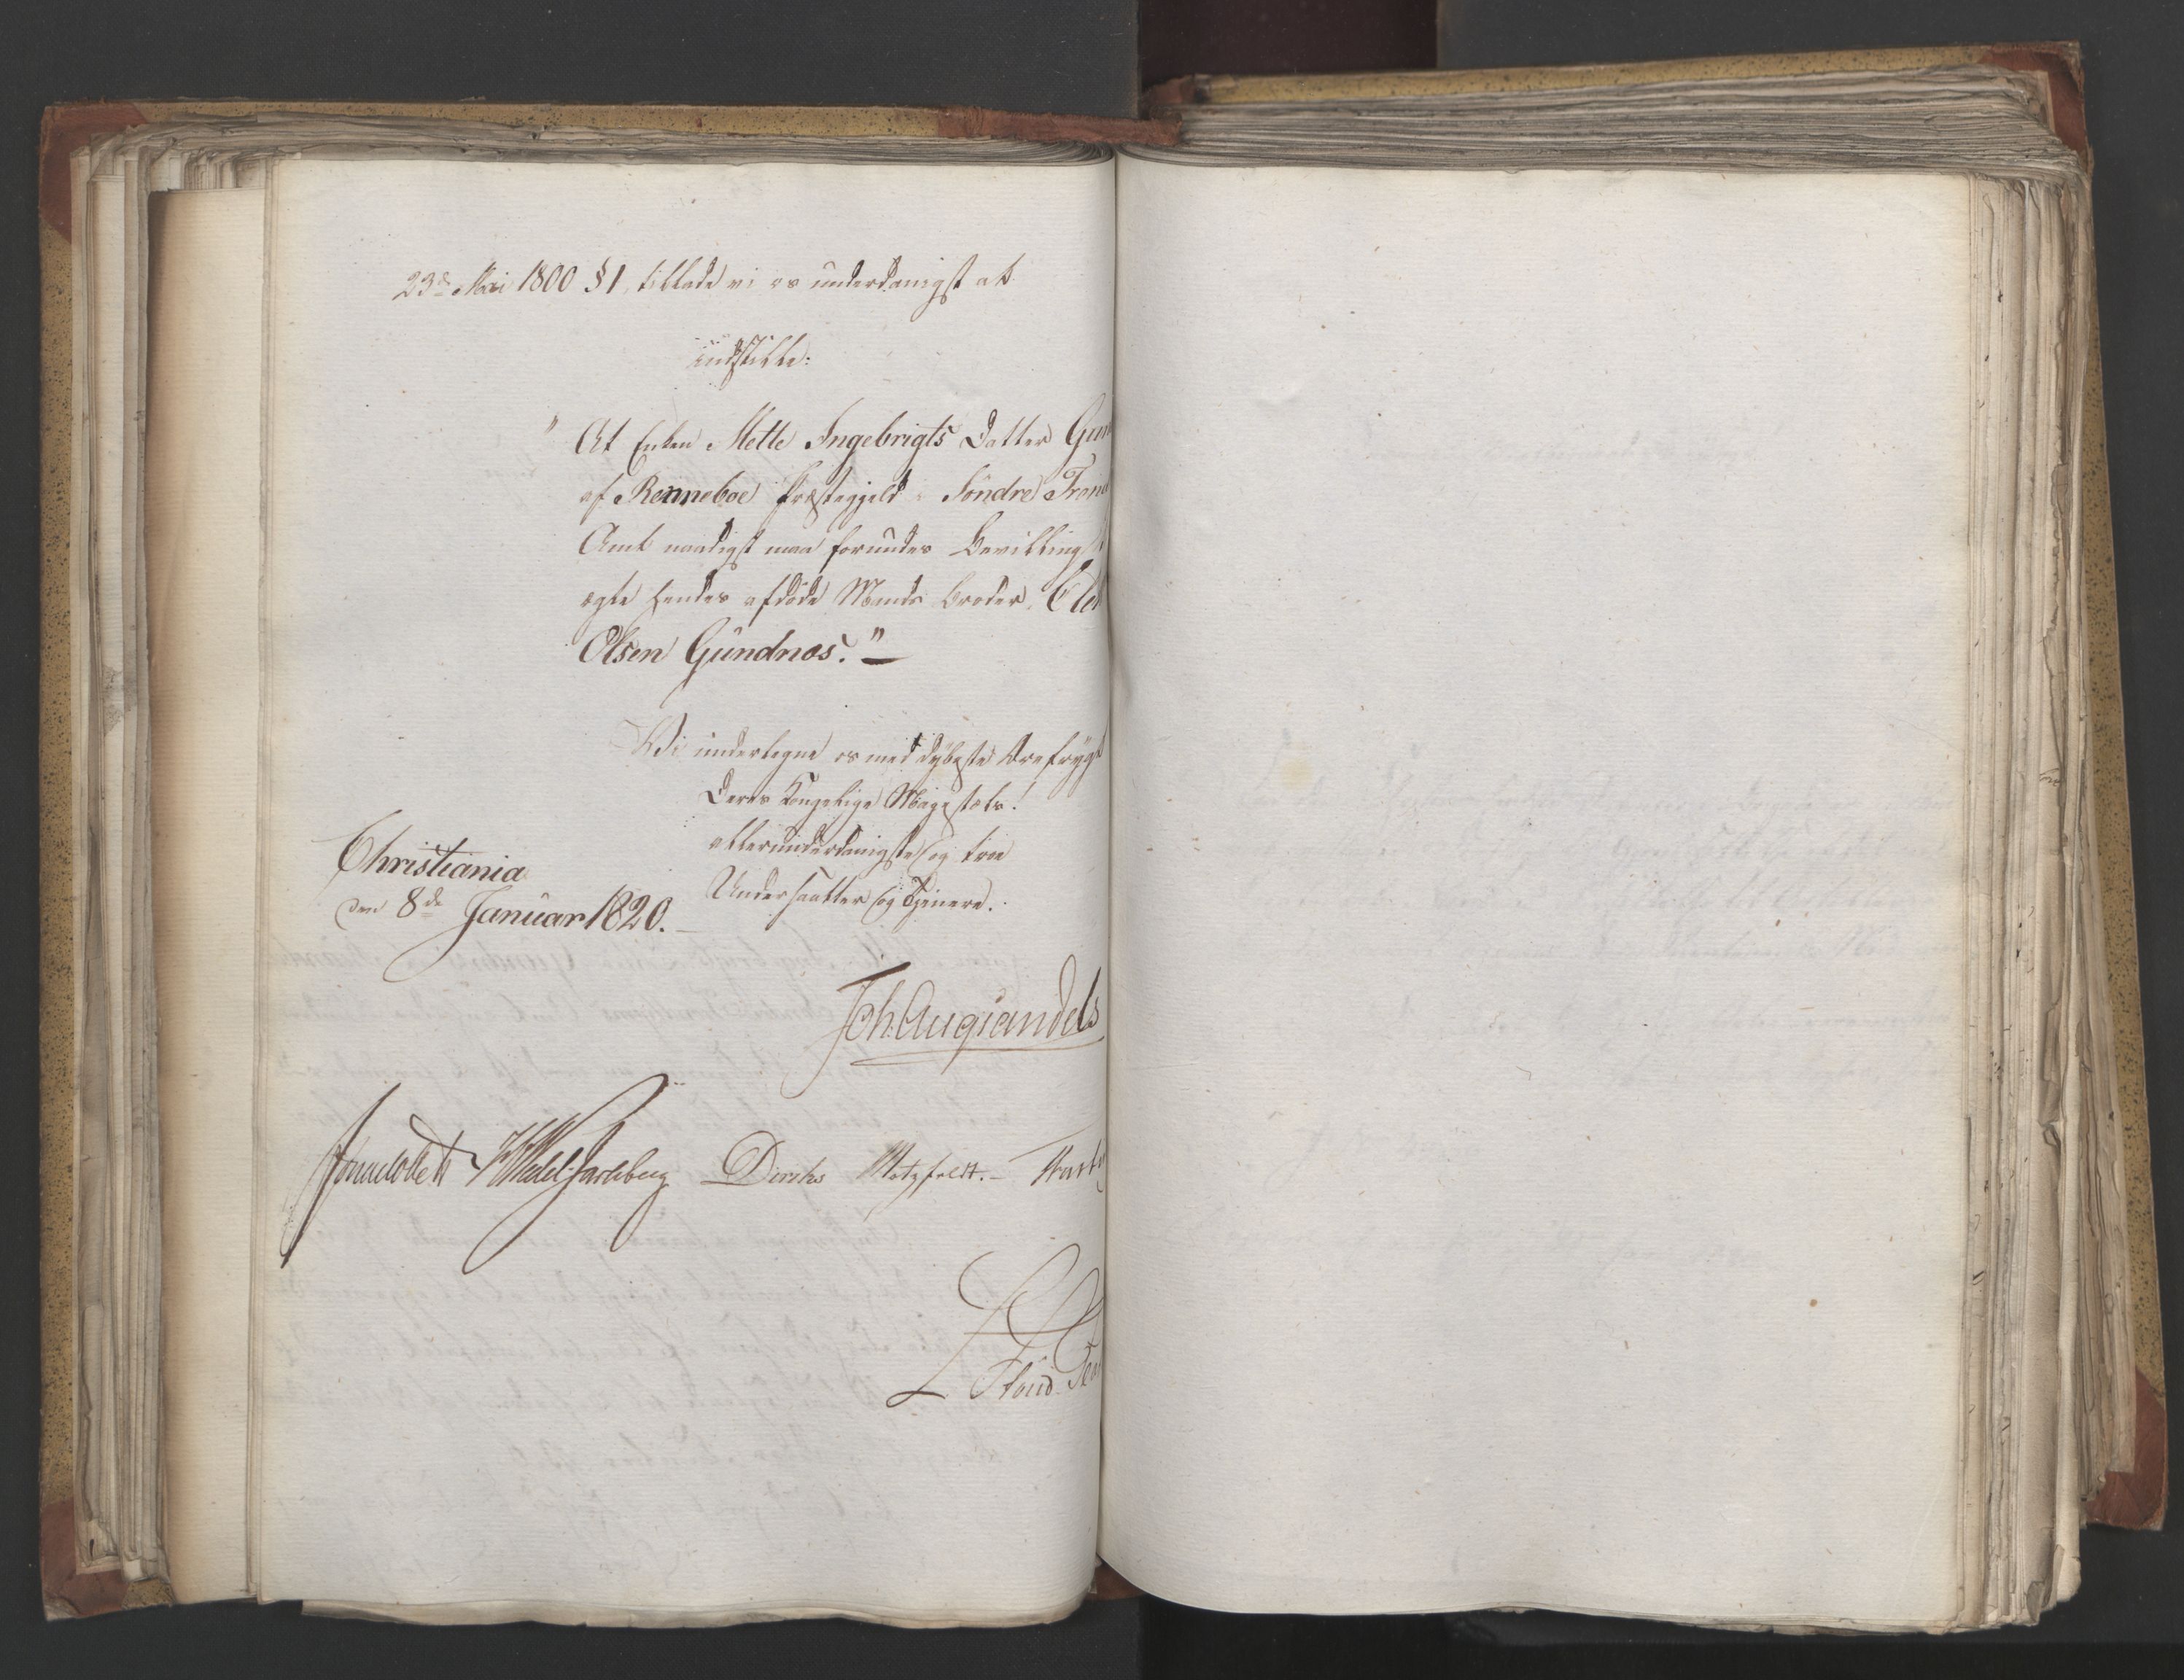 23de Mai 1800 §1, tillade vi os underdanigst at
indstille:
" At Enken Mette Ingebrigts Datter Gun
af Renneboe Præstegjeld i Söndre Trond
Amt naadigst maa forundes Bevilling
ægte hendes afdöde Mands Broder,
Olsen Gundnæs." —
Vi undertegne os med dybeste Ærefrygt
Deres Kongelige Majestæts!
allerunderdanigste og troe
Undersaatter og Tjenere.
Christiania
den 8de Januar 1820.
Joh. Aug. Sandels
Sommerfeldt Wedel Jarlsberg Diriks Motzfeldt. –